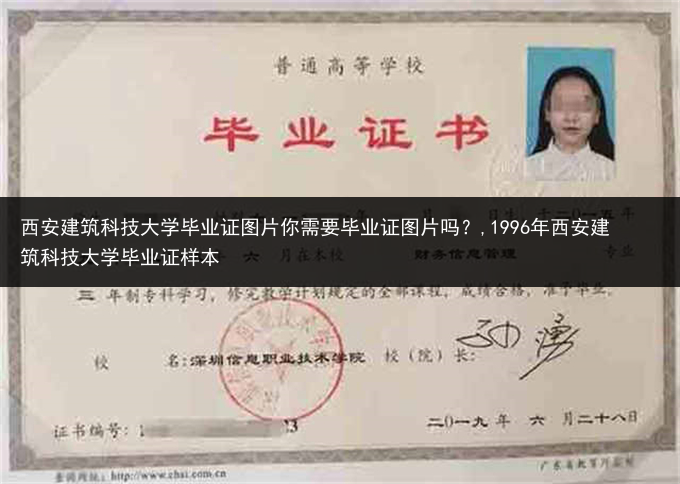 普通高等学校
毕业证书
二〇一五年
西安建筑科技大学毕业证图片你需要毕业证图片吗？,1996年西安建
筑科技大学毕业证样本
六 月在本校 财务信息管理 专业
三 年制专科学习，修完教学计划规定的全部课程，成绩合格，准予毕业。
校 名：深圳信息职业技术学院 校（院）长：
证书编号：1 3
二〇一九 年 六 月二十八日
查询网址：http://www.chsi.com.cn
广东省教育厅监制